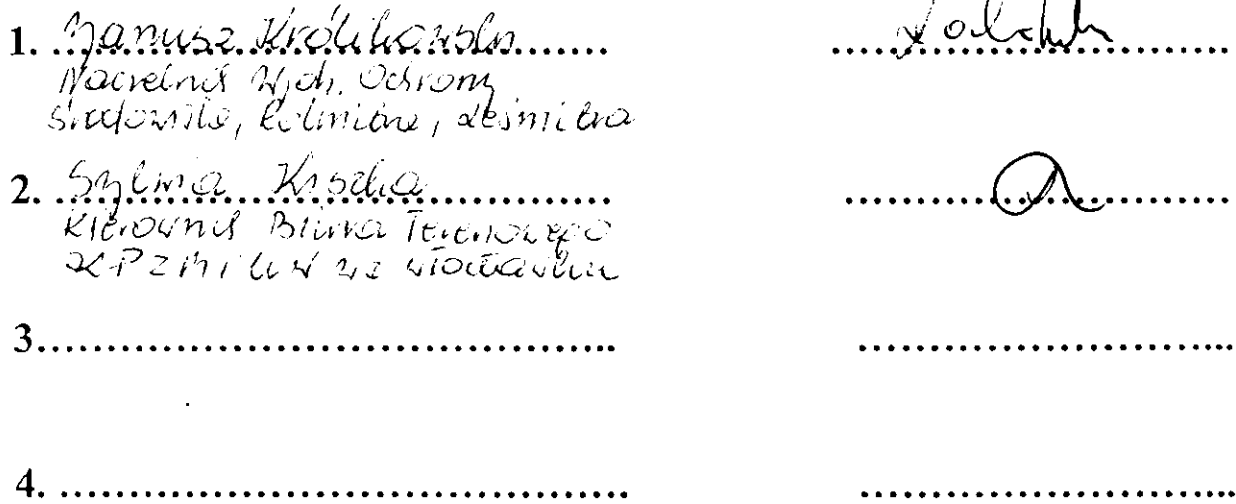 1. Janusz Królikowski
Naczelnik Wydz. Ochrony
Środowiska, Rolnictwa, Leśnictwa
2. Sylwia
Kierownik Biura Terenowego
K-PZMiUW we Włocławku
3.
4.